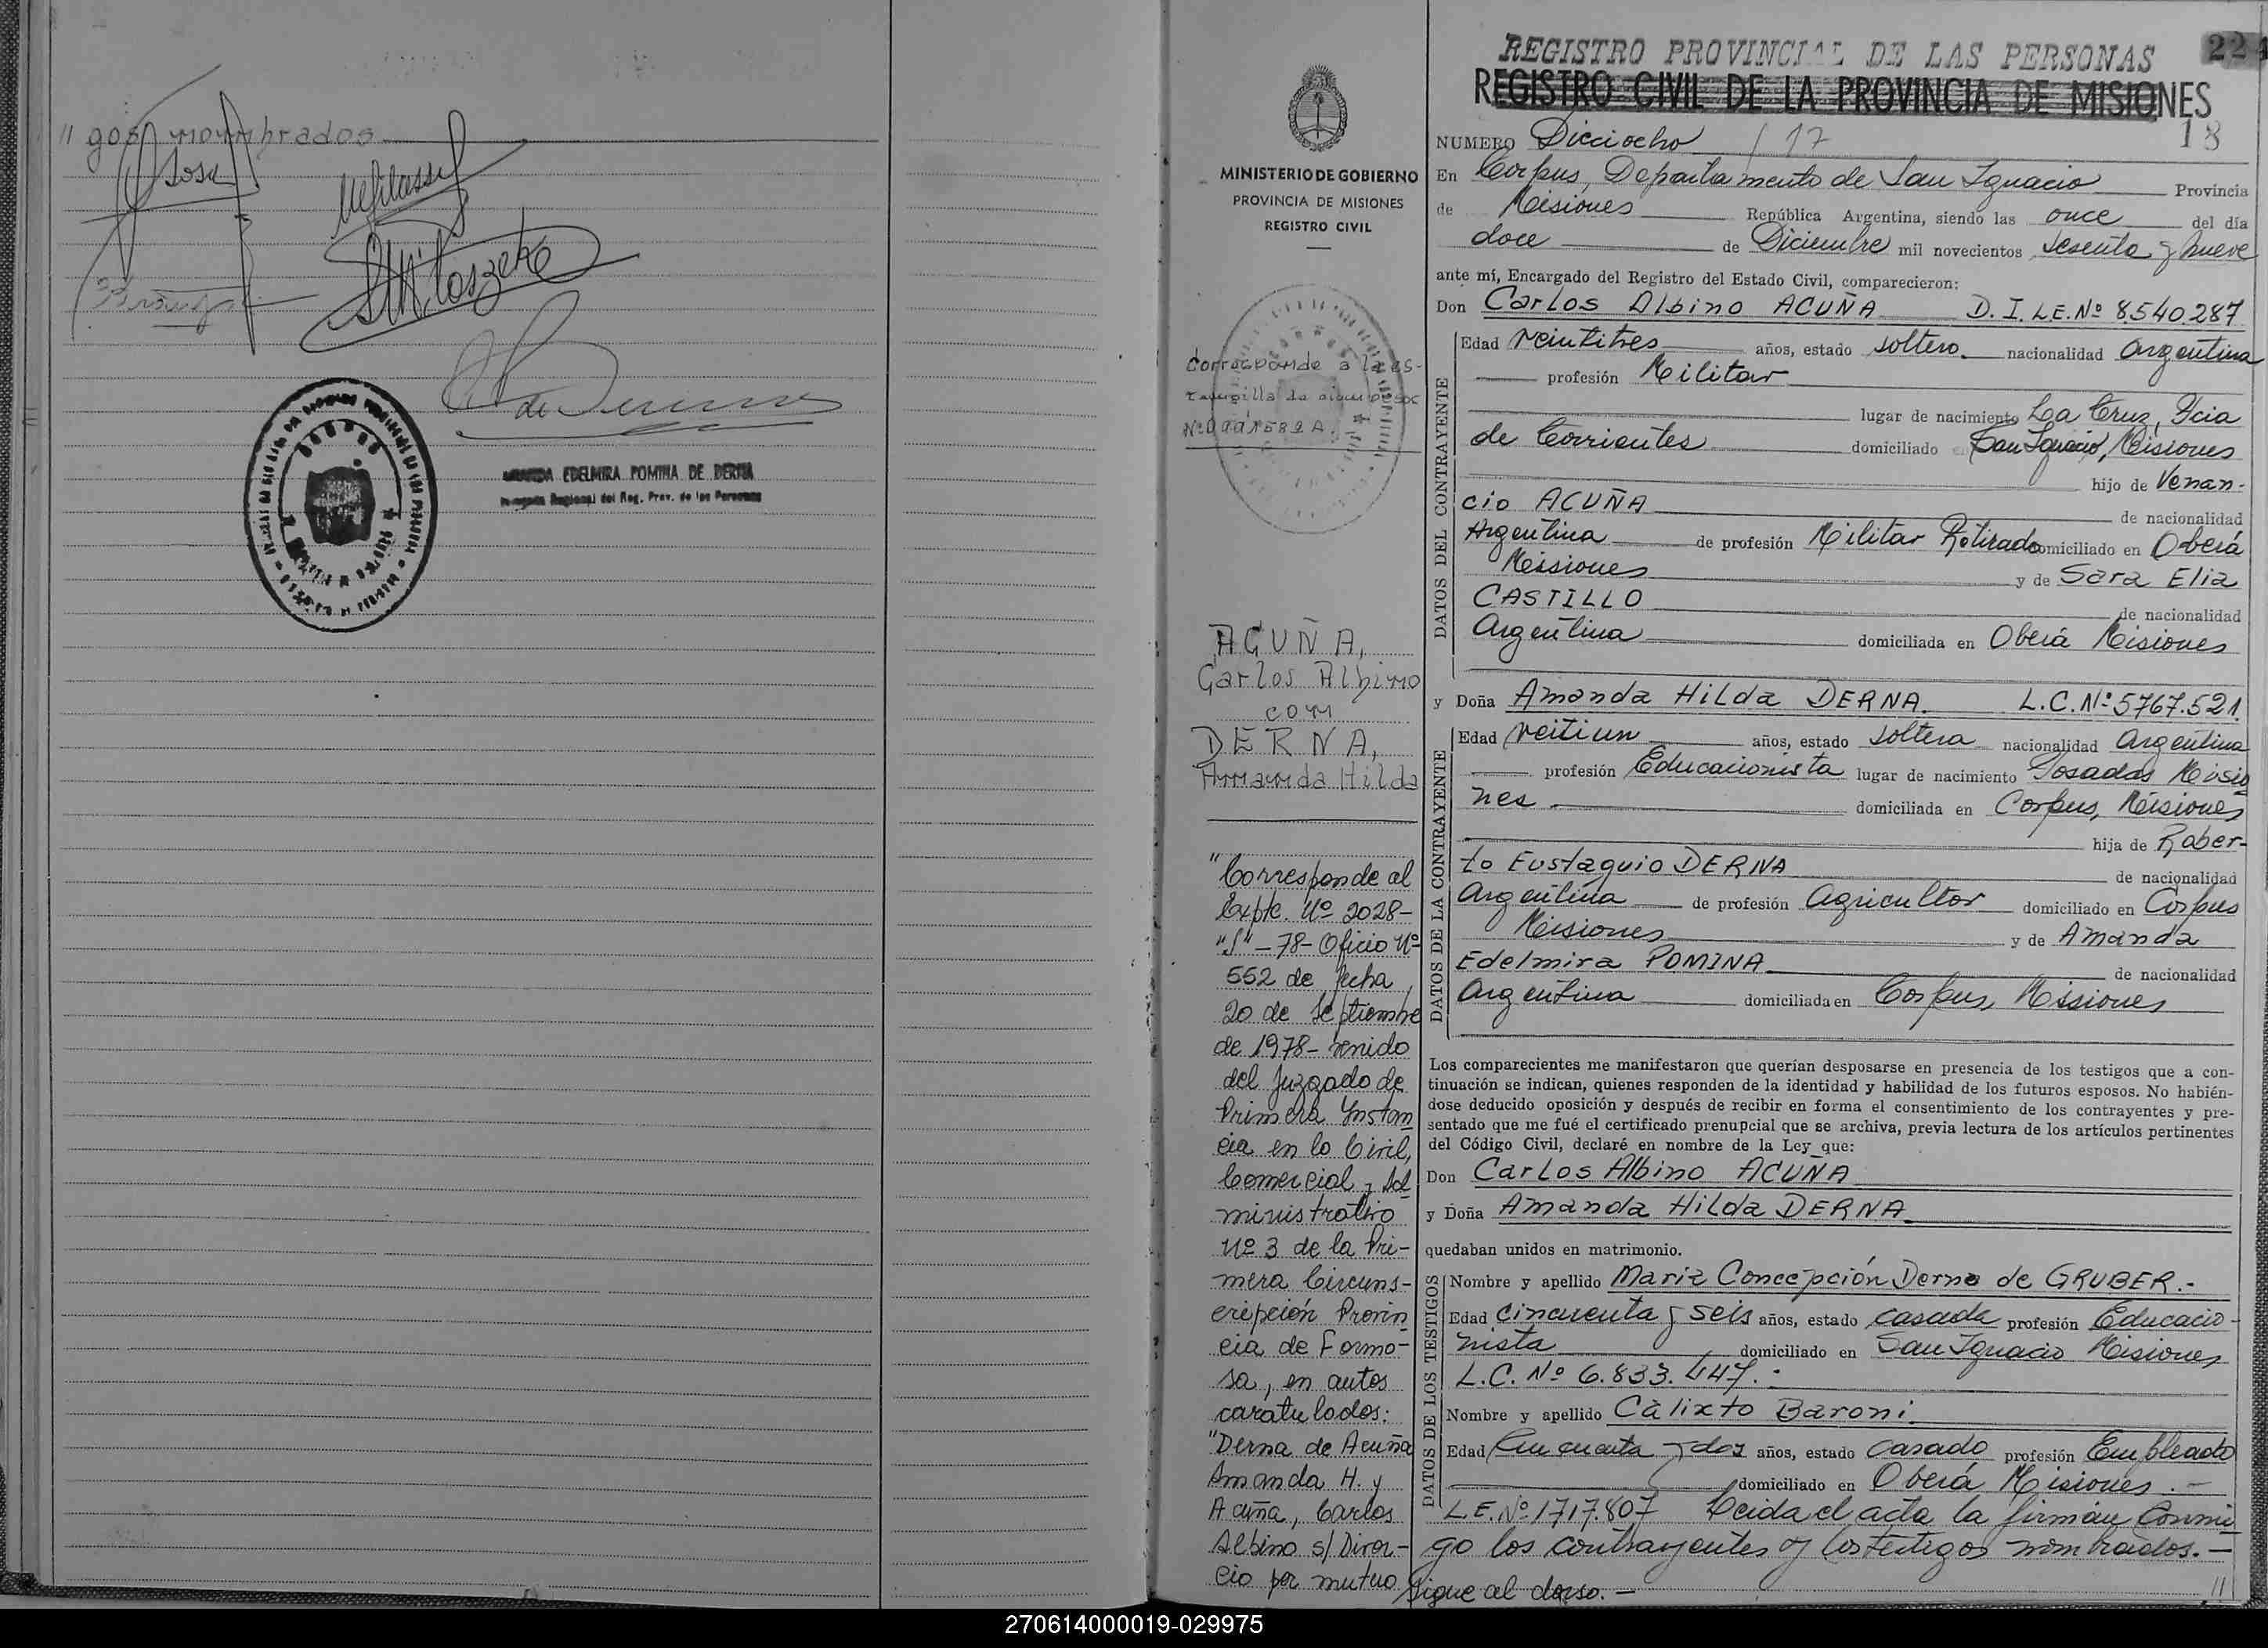 // gos nombrados
Sosa
AMANDA EDELMIRA POMINA DE DERNA
Regional del Reg. Prov. de las Personas
REGISTRO PROVINCIAL DE LAS PERSONAS
221
REGISTRO CIVIL DE LA PROVINCIA DE MISIONES
18
MINISTERIO DE GOBIERNO
PROVINCIA DE MISIONES
REGISTRO CIVIL
Corresponde a la es-
ACUÑA,
Carlos Albino
con
DERNA,
Amanda Hilda
"Corresponde al
Expte. Nº 2028-
"S"-78- Oficio Nº
552 de fecha
20 de Septiembre
de 1978- venido
del Juzgado de
Primera Instan
cia en lo Civil,
Comercial y Ad
ministrativo
Nº 3 de la Pri-
mera Circuns-
cripción Provin
cia de Formo-
sa, en autos
caratulados:
"Derna de Acuña
Amanda H. y
Acuña, Carlos
Albino s/ Divor-
cio por mutuo
Sigue al dorso. —
NUMERO Dieciocho / 17
En Corpus, Departamento de San Ignacio Provincia
de Misiones República Argentina, siendo las once del día
doce de Diciembre mil novecientos sesenta y nueve
ante mí, Encargado del Registro del Estado Civil, comparecieron:
Don Carlos Albino ACUÑA D. I. L.E. Nº 8.540.287
DATOS DEL CONTRAYENTE
Edad veintitres años, estado soltero. nacionalidad Argentina
profesión Militar
lugar de nacimiento La Cruz, Pcia
de Corrientes domiciliado San Ignacio, Misiones
hijo de Venan-
cio ACUÑA de nacionalidad
Argentina de profesión Militar Retirado domiciliado en Oberá
Misiones y de Sara Elia
CASTILLO de nacionalidad
Argentina domiciliada en Oberá Misiones
y Doña Amanda Hilda DERNA. L.C. Nº 5767.521.
DATOS DE LA CONTRAYENTE
Edad veitiun años, estado soltera nacionalidad Argentina
profesión Educacionista lugar de nacimiento Posadas Misio
nes domiciliada en Corpus, Misiones
hija de Rober-
to Eustaquio DERNA de nacionalidad
Argentina de profesión Agricultor domiciliado en Corpus
Misiones y de Amanda
Edelmira POMINA de nacionalidad
Argentina domiciliada en Corpus, Misiones
Los comparecientes me manifestaron que querían desposarse en presencia de los testigos que a con-
tinuación se indican, quienes responden de la identidad y habilidad de los futuros esposos. No habién-
dose deducido oposición y después de recibir en forma el consentimiento de los contrayentes y pre-
sentado que me fué el certificado prenupcial que se archiva, previa lectura de los artículos pertinentes
del Código Civil, declaré en nombre de la Ley que:
Don Carlos Albino ACUÑA
y Doña Amanda Hilda DERNA
quedaban unidos en matrimonio.
DATOS DE LOS TESTIGOS
Nombre y apellido Maria Concepción Derna de GRUBER.-
Edad cincuenta y seis años, estado casada profesión Educacio-
nista domiciliado en San Ignacio Misiones
L.C. Nº 6.833.447.-
Nombre y apellido Calixto Baroni.
Edad Cincuenta y dos años, estado casado profesión Empleado
domiciliado en Oberá Misiones.-
L.E. Nº 1717.807 Leida el acta la firman conmi
go los contrayentes y los testigos nombrados.-
//
270614000019-029975